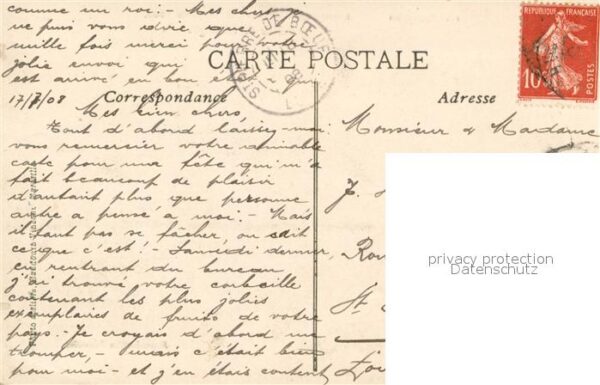 comme un roi: - Mes chers
ne puis vous dire que
mille fois merci pour votre
jolie envoi qui
est arrivé en bon état qui
DE BŒUF
CARTE POSTALE
RÉPUBLIQUE FRANÇAISE
10
POSTES
17/7/08
Correspondance
Adresse
Mes bien chers,
Tout d'abord laissez-moi
vous remercier votre aimable
carte pour ma fête qui m'a
fait beaucoup de plaisir
d'autant plus que personne
autre a pensé à moi. - Mais
il faut pas se fâcher, on sait
ce que c'est! - Samedi dernier,
en rentrant du bureau
j'ai trouvé votre corbeille
contenant les plus jolies
exemplaires de fruits de votre
pays. - Je croyais d'abord me
tromper, - mais c'était bien
pour moi - et j'en étais content
Monsieur & Madame
J.
Rou
St
Loi
privacy protection
Datenschutz